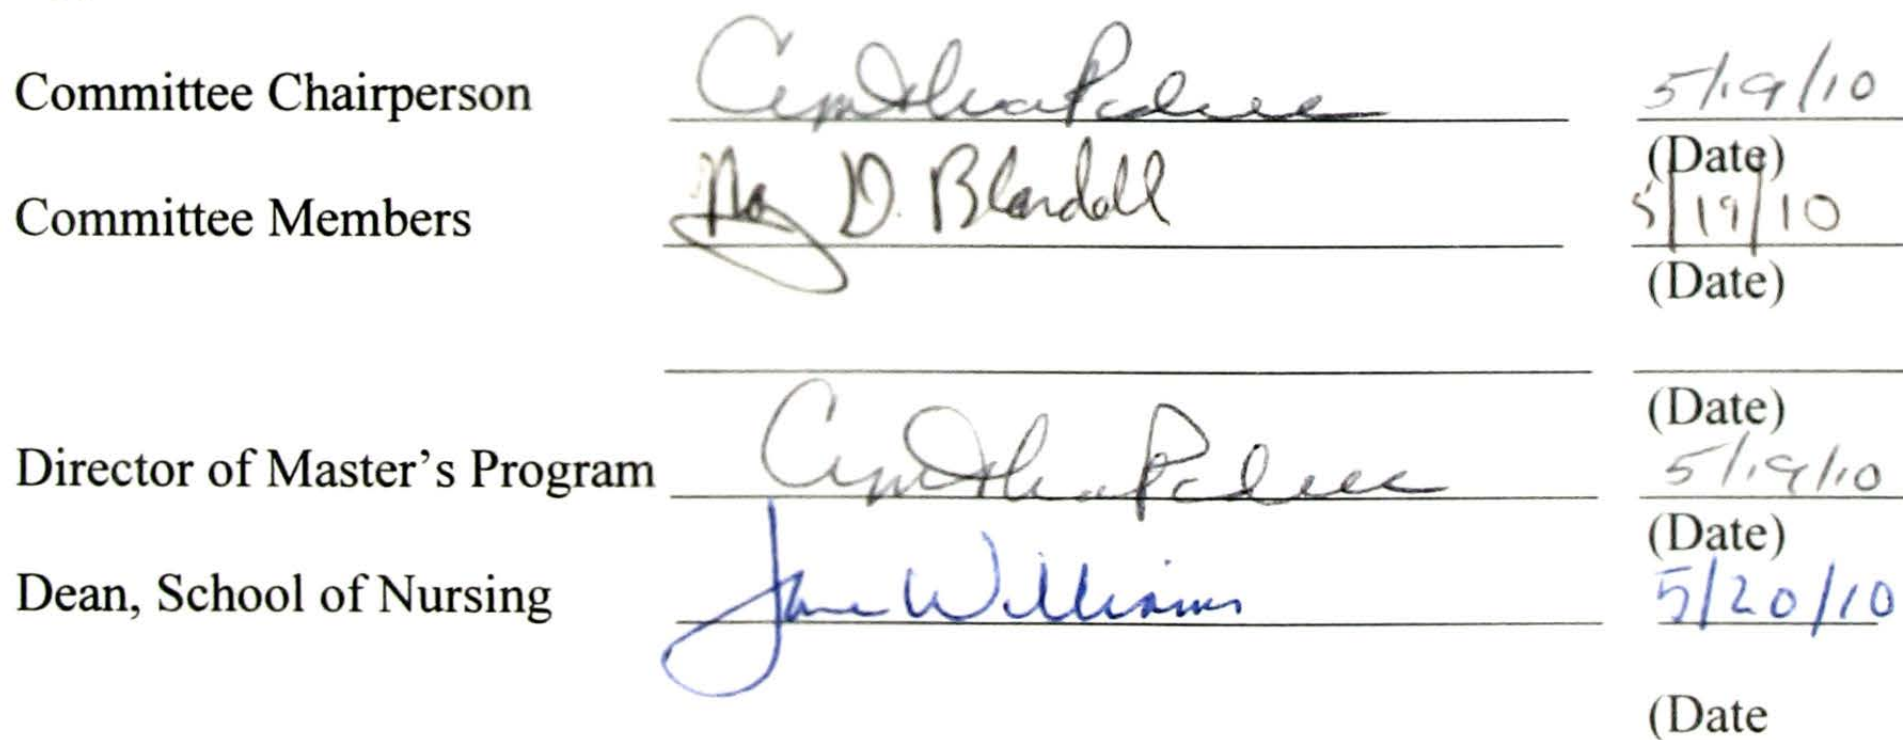 Committee Chairperson Cynthia 5/19/10
(Date)
Committee Members D. Blandall 5/19/10
(Date)
(Date)
Director of Master's Program Cynthia 5/19/10
(Date)
Dean, School of Nursing Jane Williams 5/20/10
(Date